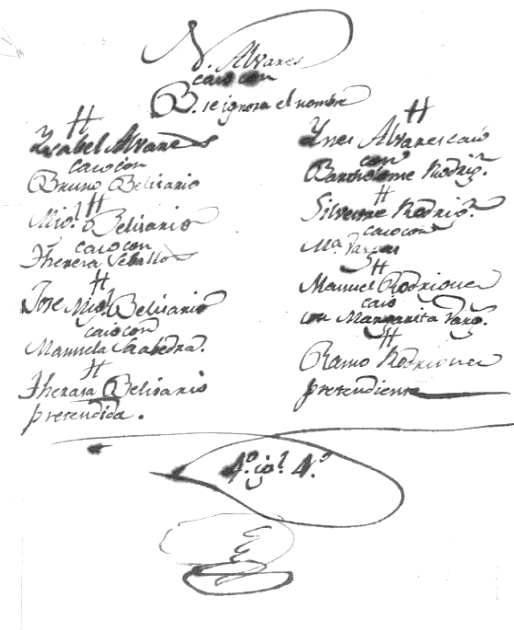 N. Alvares
caso con
B. se ignora el nombre
H
Ysabel Alvares
caso con
Bruno Belisario
H
Mig.l Belisario
caso con
Theresa Seballos
H
Jose Mig.l Belisario
caso con
Manuela Saabedra.
H
Therasa Belisario
pretendida.
H
Ynes Alvares caso
con
Bartholome Rodrig.z
H
Silvestre Rodrig.z
caso con
M.a Vargas
H
Manuel Rodriguez
caso
con Margarita Varg.s
H
Ramo Rodriguez
pretendiente
4.º ig.l 4.º